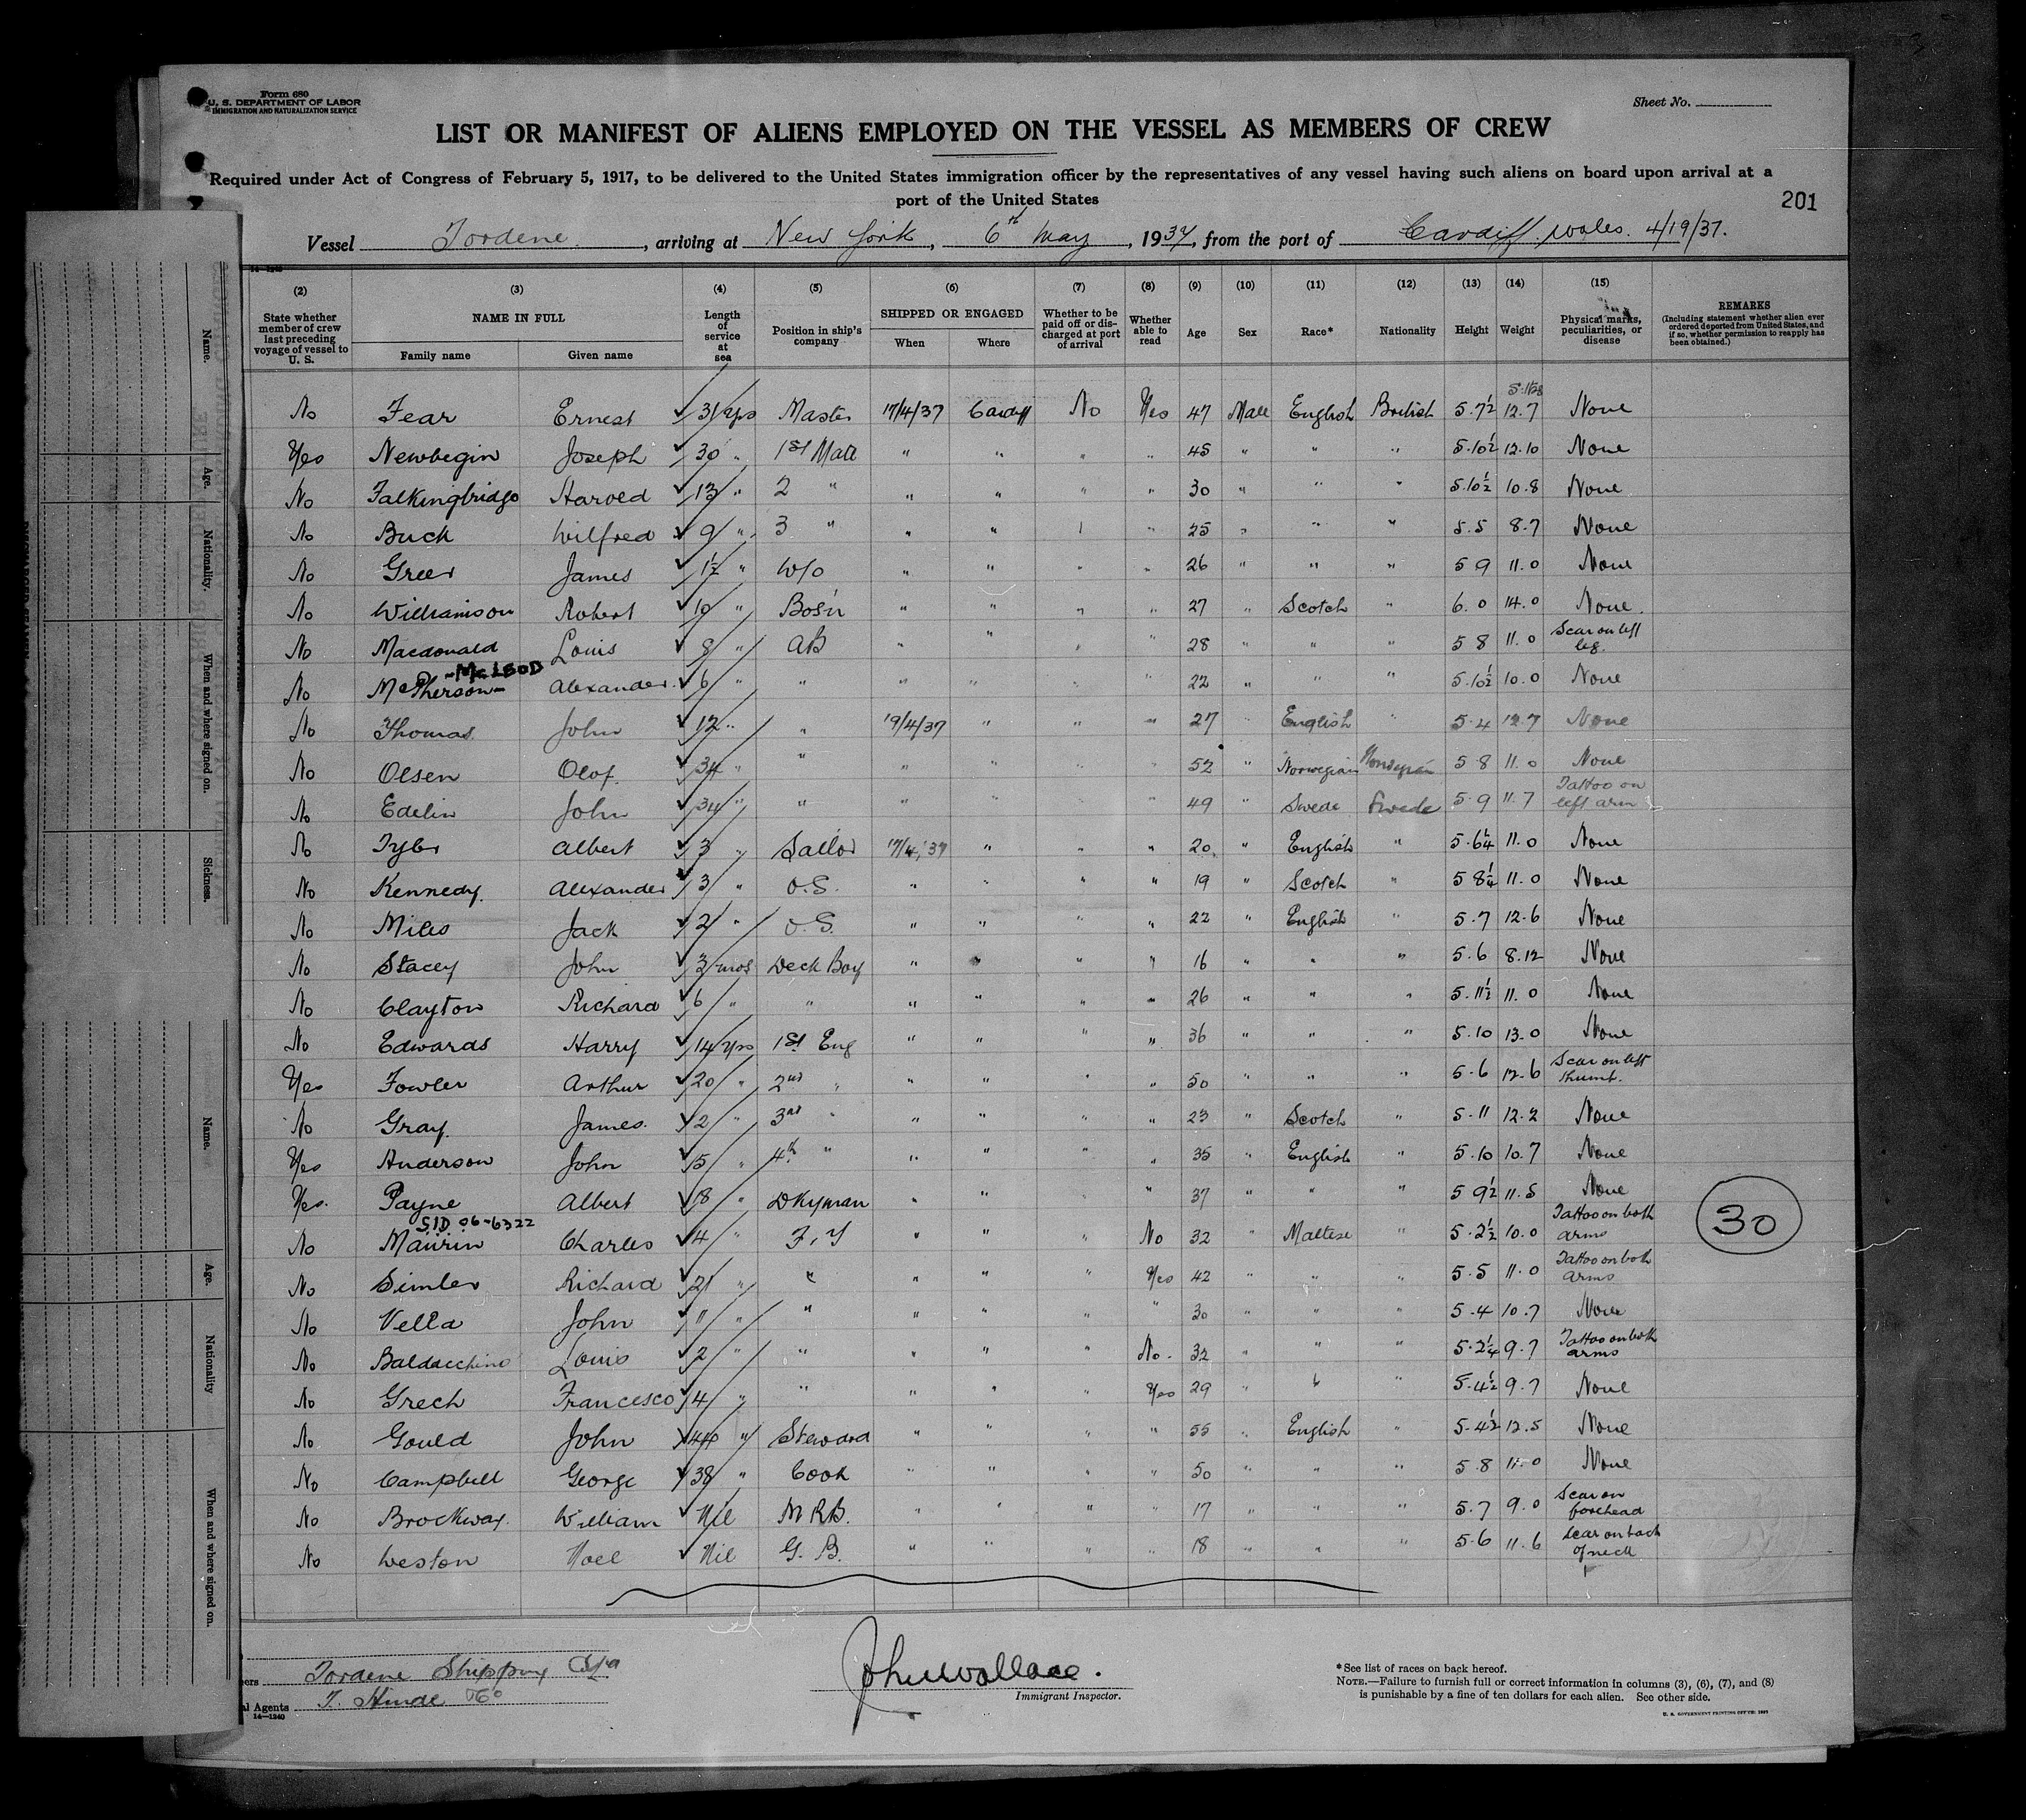 Form 680
U. S. DEPARTMENT OF LABOR
IMMIGRATION AND NATURALIZATION SERVICE
Sheet No.
LIST OR MANIFEST OF ALIENS EMPLOYED ON THE VESSEL AS MEMBERS OF CREW
Required under Act of Congress of February 5, 1917, to be delivered to the United States immigration officer by the representatives of any vessel having such aliens on board upon arrival at a
port of the United States
201
Vessel Tordene, arriving at New York, 6th May, 1937, from the port of Cardiff. Wales. 4/19/37.
(2) (3) (4) (5) (6) (7) (8) (9) (10) (11) (12) (13) (14) (15)
State whether member of crew last preceding voyage of vessel to U. S.
NAME IN FULL
Family name Given name
Length of service at sea
Position in ship's company
SHIPPED OR ENGAGED
When Where
Whether to be paid off or discharged at port of arrival
Whether able to read
Age
Sex
Race*
Nationality
Height
Weight
Physical marks, peculiarities, or disease
REMARKS
(Including statement whether alien ever ordered deported from United States, and if so, whether permission to reapply has been obtained.)
No Fear Ernest ✓ 31 yrs Master 17/4/37 Cardiff No Yes 47 Male English British 5.7½ 12.7 None
Yes Newbegin Joseph ✓ 30 " 1st Mate " " " " 45 " " " 5.10½ 12.10 None
No Falkingbridge Harold ✓ 13 " 2 " " " " " 30 " " " 5.10½ 10.8 None
No Buck Wilfred ✓ 9 " 3 " " " " " 25 " " " 5.5 8.7 None
No Greer James ✓ 1½ " W/O " " " " 26 " " " 5 9 11.0 None
No Williamson Robert ✓ 10 " Bos'n " " " " 27 " Scotch " 6.0 14.0 None.
No Macdonald Louis ✓ 8 " AB " " " " 28 " " " 5 8 11.0 Scar on left leg.
- McLEOD
No McPherson- Alexander. ✓ 6 " " " " " " 22 " " " 5.10½ 10.0 None
No Thomas John ✓ 12 " " 19/4/37 " " " 27 " English " 5.4 12.7 None
No Olsen Olof. ✓ 34 " " " " " " 52 " Norwegian Norwegian 5 8 11.0 None
No Edelin John ✓ 34 " " " " " " 49 " Swede Swede 5 9 11.7 Tattoo on left arm
No Tyler Albert ✓ 3 " Sailor 17/4/37 " " " 20 " English " 5.6¼ 11.0 None
No Kennedy. Alexander ✓ 3 " O.S. " " " " 19 " Scotch " 5 8¼ 11.0 None
No Miles Jack ✓ 2 " O.S. " " " " 22 " English " 5.7 12.6 None
No Stacey John ✓ 3 mos Deck Boy " " " " 16 " " " 5.6 8.12 None
No Clayton Richard ✓ 6 " " " " " " 26 " " " 5.11½ 11.0 None
No Edwards Harry ✓ 14 yrs 1st Eng " " " " 36 " " " 5.10 13.0 None
Yes Fowler Arthur ✓ 20 " 2nd " " " " " 50 " " " 5.6 12.6 Scar on left thumb.
No Gray. James. ✓ 2 " 3rd " " " " " 23 " Scotch " 5.11 12.2 None
Yes Anderson John ✓ 5 " 4th " " " " " 35 " English " 5.10 10.7 None
Yes. Payne Albert ✓ 18 " Dkyman " " " " 37 " " " 5 9½ 11.5 None
SID 06-6322
No Maurin Charles ✓ 4 " F, T " " " No 32 " Maltese " 5.2½ 10.0 Tattoo on both arms
30
No Simler Richard ✓ 21 " " " " " Yes 42 " " " 5.5 11.0 Tattoo on both arms
No Vella John ✓ 11 " " " " " " 30 " " " 5.4 10.7 None
No Baldacchino Louis ✓ 2 " " " " " No. 32 " " " 5.2¼ 9.7 Tattoo on both arms
No Grech Francesco ✓ 4 " " " " " Yes 29 " " " 5.4½ 9.7 None
No Gould John ✓ 44 " Steward " " " " 55 " English " 5.4½ 12.5 None
No Campbell George ✓ 38 " Cook " " " " 50 " " " 5 8 11.0 None
No Brockway. William ✓ Nil M R B. " " " " 17 " " " 5.7 9.0 Scar on forehead
No Weston Noel ✓ Nil G. B. " " " " 18 " " " 5.6 11.6 Scar on back of neck
Tordene Shipping
al Agents T. Hinde
14-1240
John Wallace.
Immigrant Inspector.
*See list of races on back hereof.
NOTE.—Failure to furnish full or correct information in columns (3), (6), (7), and (8)
is punishable by a fine of ten dollars for each alien. See other side.
U. S. GOVERNMENT PRINTING OFFICE: 1937
Name.
Age.
Nationality.
When and where signed on.
Sickness.
Name.
Age.
Nationality
When and where signed on.